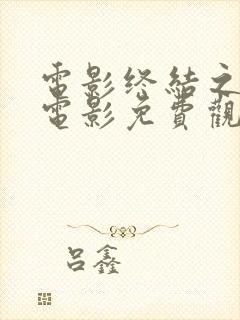 電影終結之
電影免費觀
呂鑫